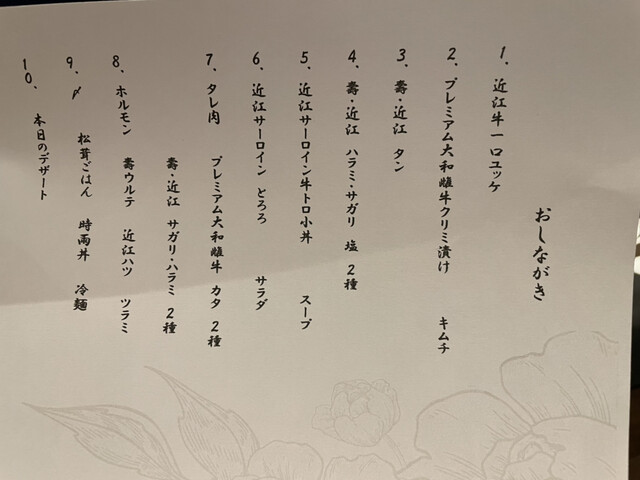 おしながき
1、近江牛一口ユッケ
2、プレミアム大和雌牛クリミ漬け　キムチ
3、壽・近江　タン
4、壽・近江　ハラミ・サガリ　塩　2種
5、近江サーロイン牛トロ小丼　スープ
6、近江サーロイン　とろろ　サラダ
7、タレ肉　プレミアム大和雌牛　カタ　2種
壽・近江　サガリ・ハラミ　2種
8、ホルモン　壽ウルテ　近江ハツ　ツラミ
9、〆　松茸ごはん　時雨丼　冷麺
10、本日のデザート